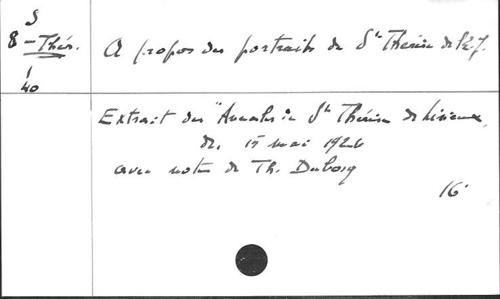 S
8 - Thér.
1
40
A propos des portraits de Ste Thérèse de l'E.J.
Extrait des "Annales de Ste Thérèse de Lisieux,
du 15 mai 1926
avec notes de Th. Dubosq
16°